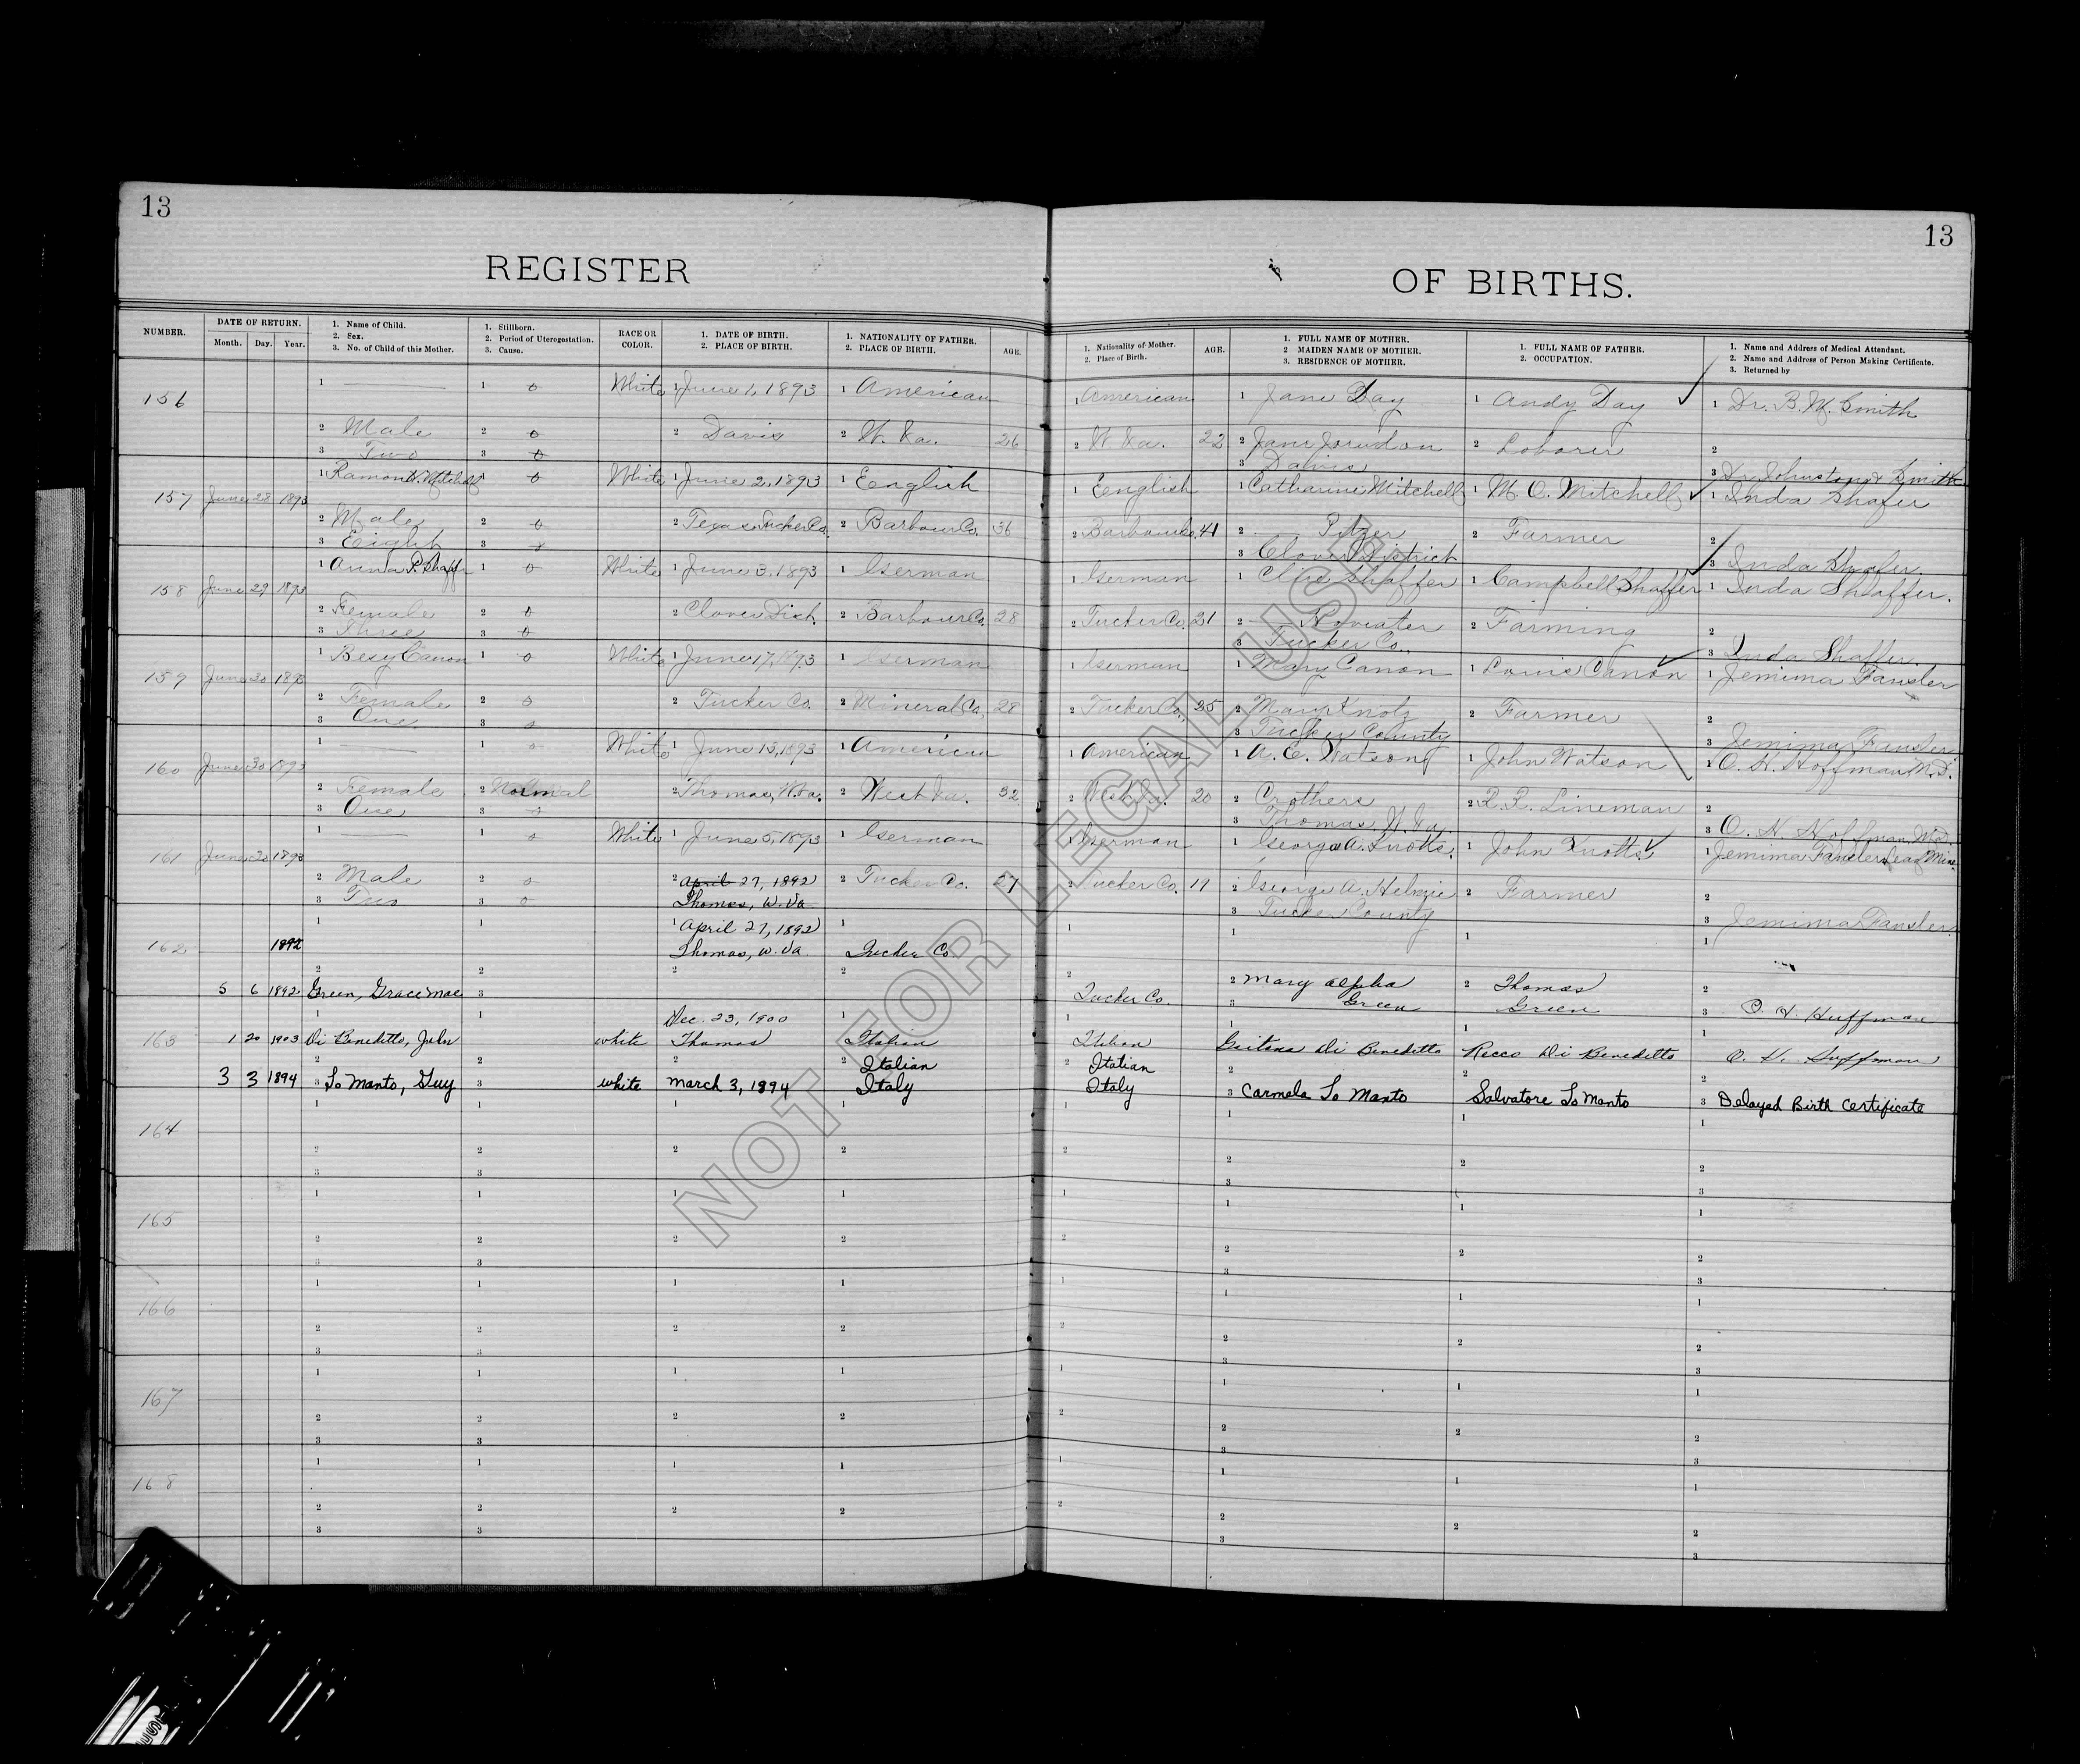 13
13
REGISTER
OF BIRTHS.
NUMBER.
DATE OF RETURN.
Month. Day. Year.
1. Name of Child.
2. Sex.
3. No. of Child of this Mother.
1. Stillborn.
2. Period of Uterogestation.
3. Cause.
RACE OR
COLOR.
1. DATE OF BIRTH.
2. PLACE OF BIRTH.
1. NATIONALITY OF FATHER.
2. PLACE OF BIRTH.
AGE.
1. Nationality of Mother.
2. Place of Birth.
AGE.
1. FULL NAME OF MOTHER.
2 MAIDEN NAME OF MOTHER.
3. RESIDENCE OF MOTHER.
1. FULL NAME OF FATHER.
2. OCCUPATION.
1. Name and Address of Medical Attendant.
2. Name and Address of Person Making Certificate.
3. Returned by
156 1 1 0 White 1 June 1, 1893 1 American 1 American 1 Jane Day 1 Andy Day 1 Dr. B. M. Smith
2 Male 2 0 2 Davis 2 W. Va. 26 2 W. Va. 22 2 Jane 2 Loborer 2
3 Two 3 0 3 Davis 3 Dr. Johnston & Smith
157 June 28 1893 1 0 White 1 June 2, 1893 1 Eenglish 1 Eenglish 1 Catharine Mitchell 1 M. O. Mitchell 1 Inda Shafer
2 Male 2 0 2 Texas Tucker Co. 2 Barbour Co. 36 2 41 2 Pitzer 2 Farmer 2
3 Eight 3 0 3 Clover District 3 Inda Shafer.
158 June 29 1893 1 Anna P. 1 0 White 1 June 3, 1893 1 German 1 German 1 Shaffer 1 Campbell Shaffer 1 Inda Shaffer.
2 Female 2 0 2 Clover Dist. 2 Barbour Co. 28 2 Tucker Co. 21 2 2 Farming 2
3 Three 3 0 3 Tucker Co. 3 Inda Shaffer.
159 June 30 1893 1 Besy Canon 1 0 White 1 June 17, 1893 1 German 1 German 1 Mary Canon 1 Louis Canon 1 Jemima Fansler
2 Female 2 0 2 Tucker Co. 2 Mineral Co. 28 2 Tucker Co. 25 2 Mary Knotz 2 Farmer 2
3 One 3 0 3 Tucker County 3 Jemima Fansler
160 June 30 1893 1 1 0 White 1 June 13, 1893 1 American 1 American 1 A. E. Watson 1 John Watson 1 O. H. Hoffman M.D.
2 Female 2 Normal 2 Thomas, W. Va. 2 West Va. 32 2 West Va. 20 2 Crothers 2 R. R. Lineman 2
3 One 3 0 3 Thomas W. Va. 3 O. H. Hoffman M.D.
161 June 30 1893 1 1 0 White 1 June 5, 1893 1 German 1 German 1 Georgia A. Knotts. 1 John Knotts 1 Jemima Fansler
2 Male 2 0 2 April 27, 1892 2 Tucker Co. 27 2 Tucker Co. 19 2 George A. 2 Farmer 2
3 Two 3 0 Thomas, W. Va 3 Tucker County 3 Jemima Fansler.
162 1892 1 1 1 April 27, 1892 1 1 1 1 1
Thomas, W. Va. Tucker Co.
2 2 2 2 2 2 Mary Alpha 2 Thomas 2
5 6 1892 Green, Grace Mae 3 Tucker Co. 3 Green Green 3 O. H. Huffman
163 1 1 Dec. 23, 1900 1 1 1 1 1
1 20 1903 Di Benedetto, John white Thomas Italian Italian Di Benedetto Rocco Di Benedetto O. H. Huffman
2 2 2 2 Italian 2 Italian 2 2 2
3 3 1894 3 Lo Manto, Guy 3 white March 3, 1894 Italy Italy 3 Carmela Lo Manto Salvatore Lo Manto 3 Delayed Birth Certificate
164 1 1 1 1 1 1 1
2 2 2 2 2 2 2 2
3 3 3 3
165 1 1 1 1 1 1 1 1
2 2 2 2 2 2 2 2
3 3 3 3
166 1 1 1 1 1 1 1 1
2 2 2 2 2 2 2 2
3 3 3 3
167 1 1 1 1 1 1 1 1
2 2 2 2 2 2 2 2
3 3 3 3
168 1 1 1 1 1 1 1 1
2 2 2 2 2 2 2 2
3 3 3 3
NOT FOR LEGAL USE